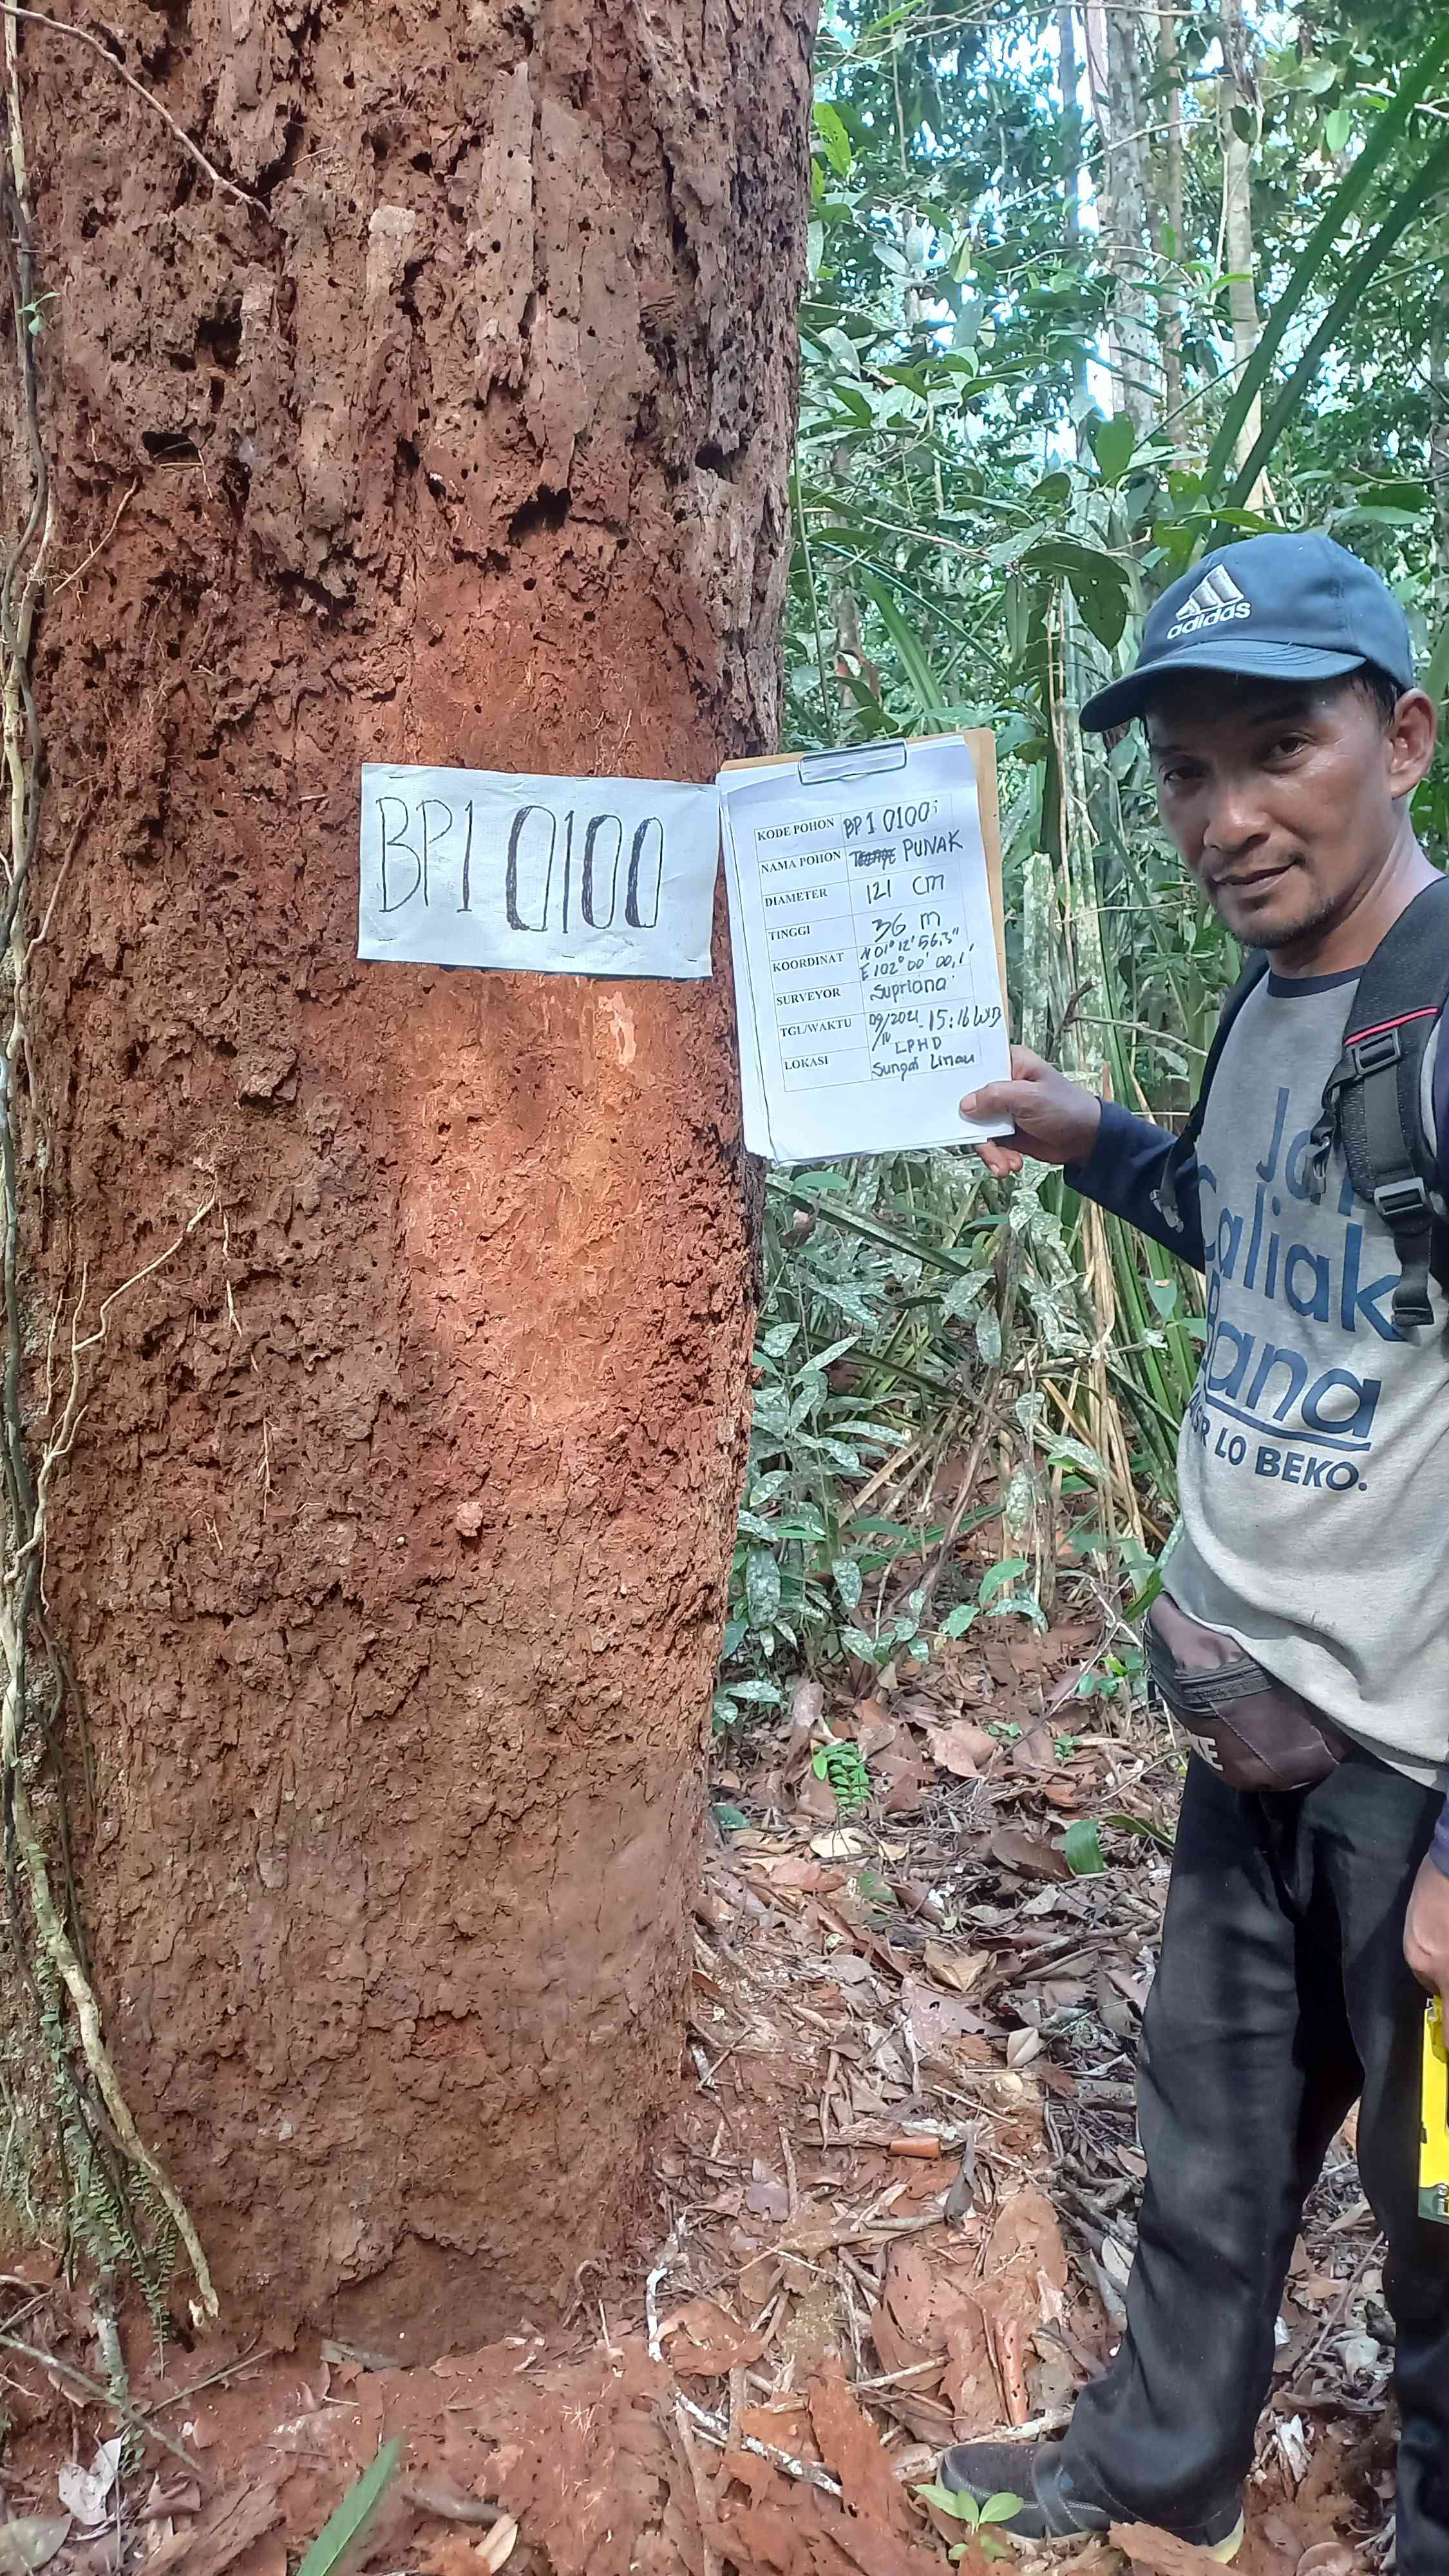 BP1 0100
KODE POHON BP1 0100
NAMA POHON PUNAK
DIAMETER 121 CM
TINGGI 36 m
KOORDINAT N 01° 12' 56,3"
E 102° 00' 00,1'
SURVEYOR Supriana
TGL/WAKTU 09/2021 - 15:16 WIB
/10
LOKASI LPHD
Sungai Linau
adidas
Caliak
Rana
LO BEKO.